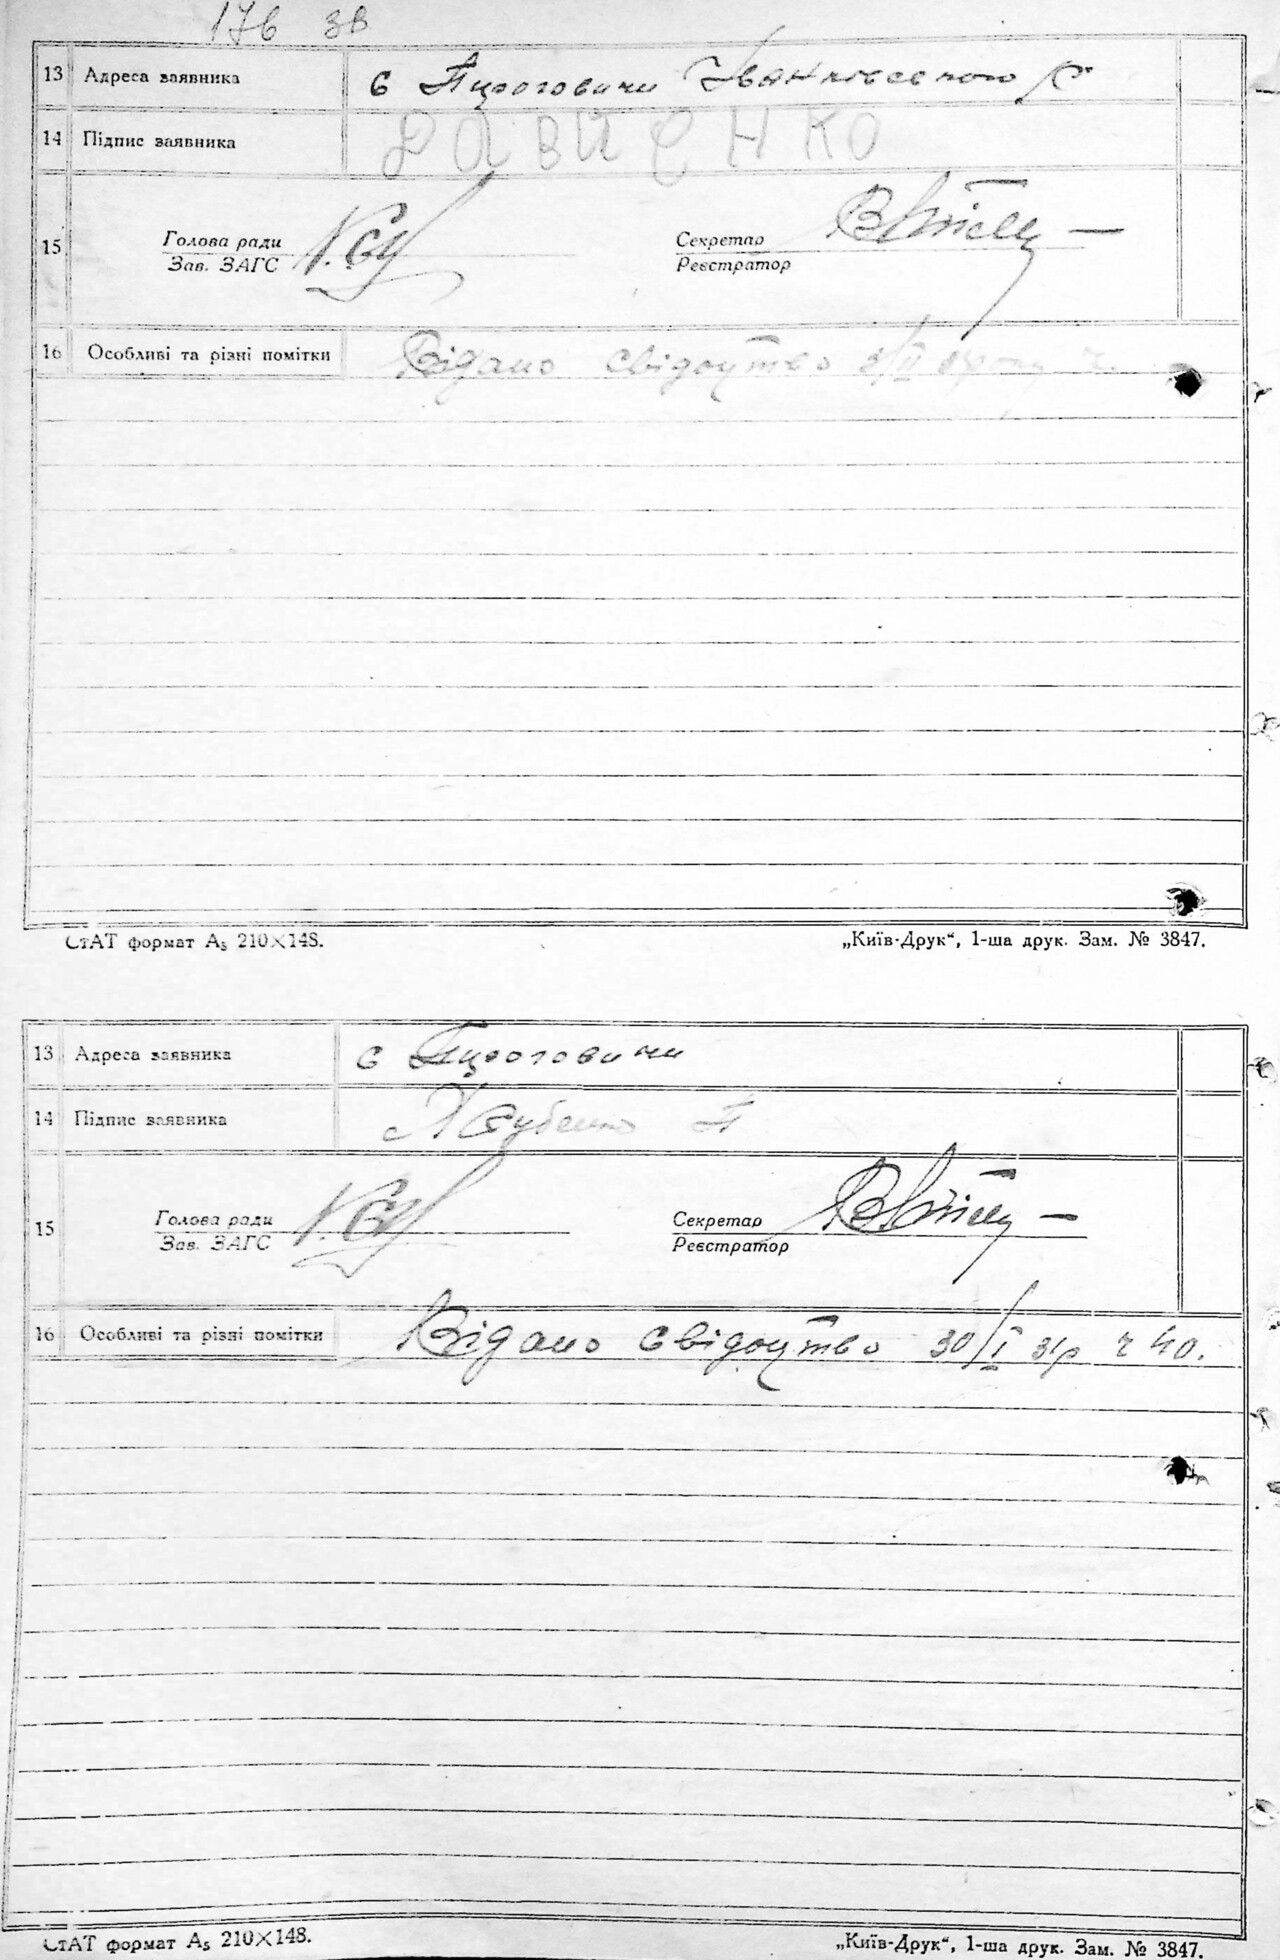 176 зв
13 Адреса заявника с Пироговичи Іванківського Р
14 Підпис заявника ДАВИЕНКО
15 Голова ради Секретар
Зав. ЗАГС Реєстратор
16 Особливі та різні помітки Відано свідоцтво
СтАТ формат А₅ 210×148.
„Київ-Друк“, 1-ша друк. Зам. № 3847.
13 Адреса заявника с Пироговичи
14 Підпис заявника П
15 Голова ради Секретар
Зав. ЗАГС Реєстратор
16 Особливі та різні помітки Відано свідоцтво 30/I 31р ч 40.
СтАТ формат А₅ 210×148.
„Київ-Друк“, 1-ша друк. Зам. № 3847.